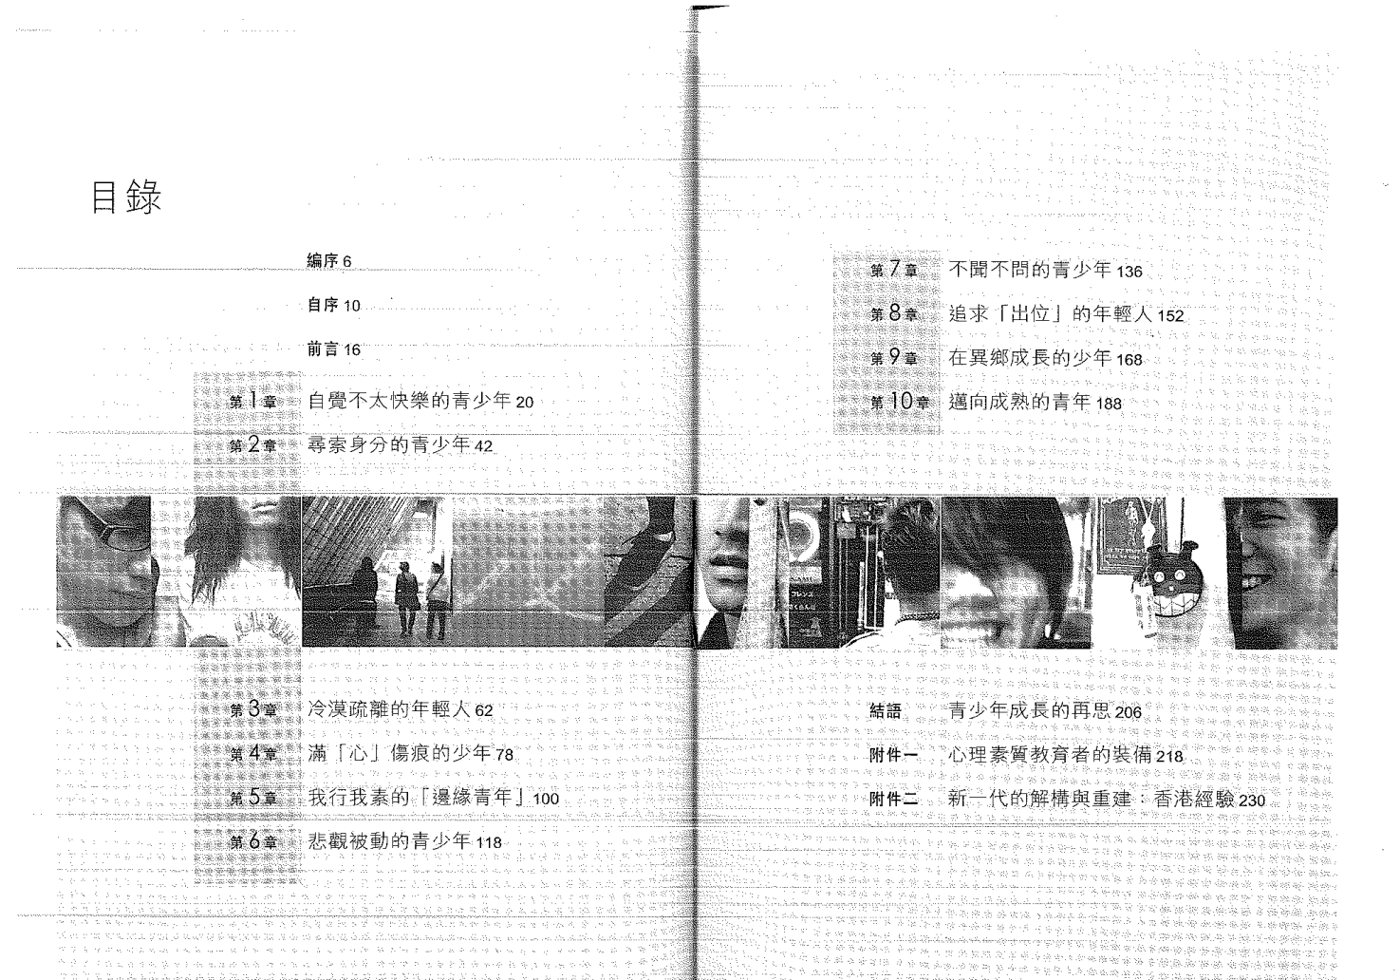 目錄
編序 6
自序 10
前言 16
第1章 自覺不太快樂的青少年 20
第2章 尋索身分的青少年 42
第3章 冷漠疏離的年輕人 62
第4章 滿「心」傷痕的少年 78
第5章 我行我素的「邊緣青年」 100
第6章 悲觀被動的青少年 118
第7章 不聞不問的青少年 136
第8章 追求「出位」的年輕人 152
第9章 在異鄉成長的少年 168
第10章 邁向成熟的青年 188
結語 青少年成長的再思 206
附件一 心理素質教育者的裝備 218
附件二 新一代的解構與重建：香港經驗 230